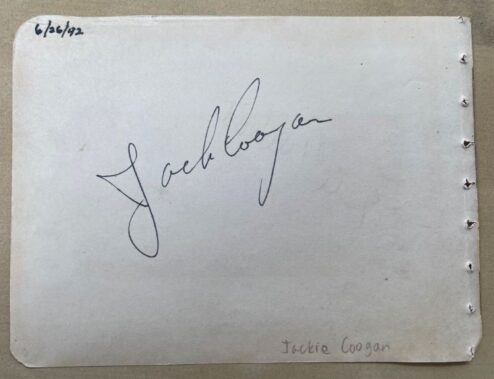 6/26/42
Jack Coogan
Jackie Coogan